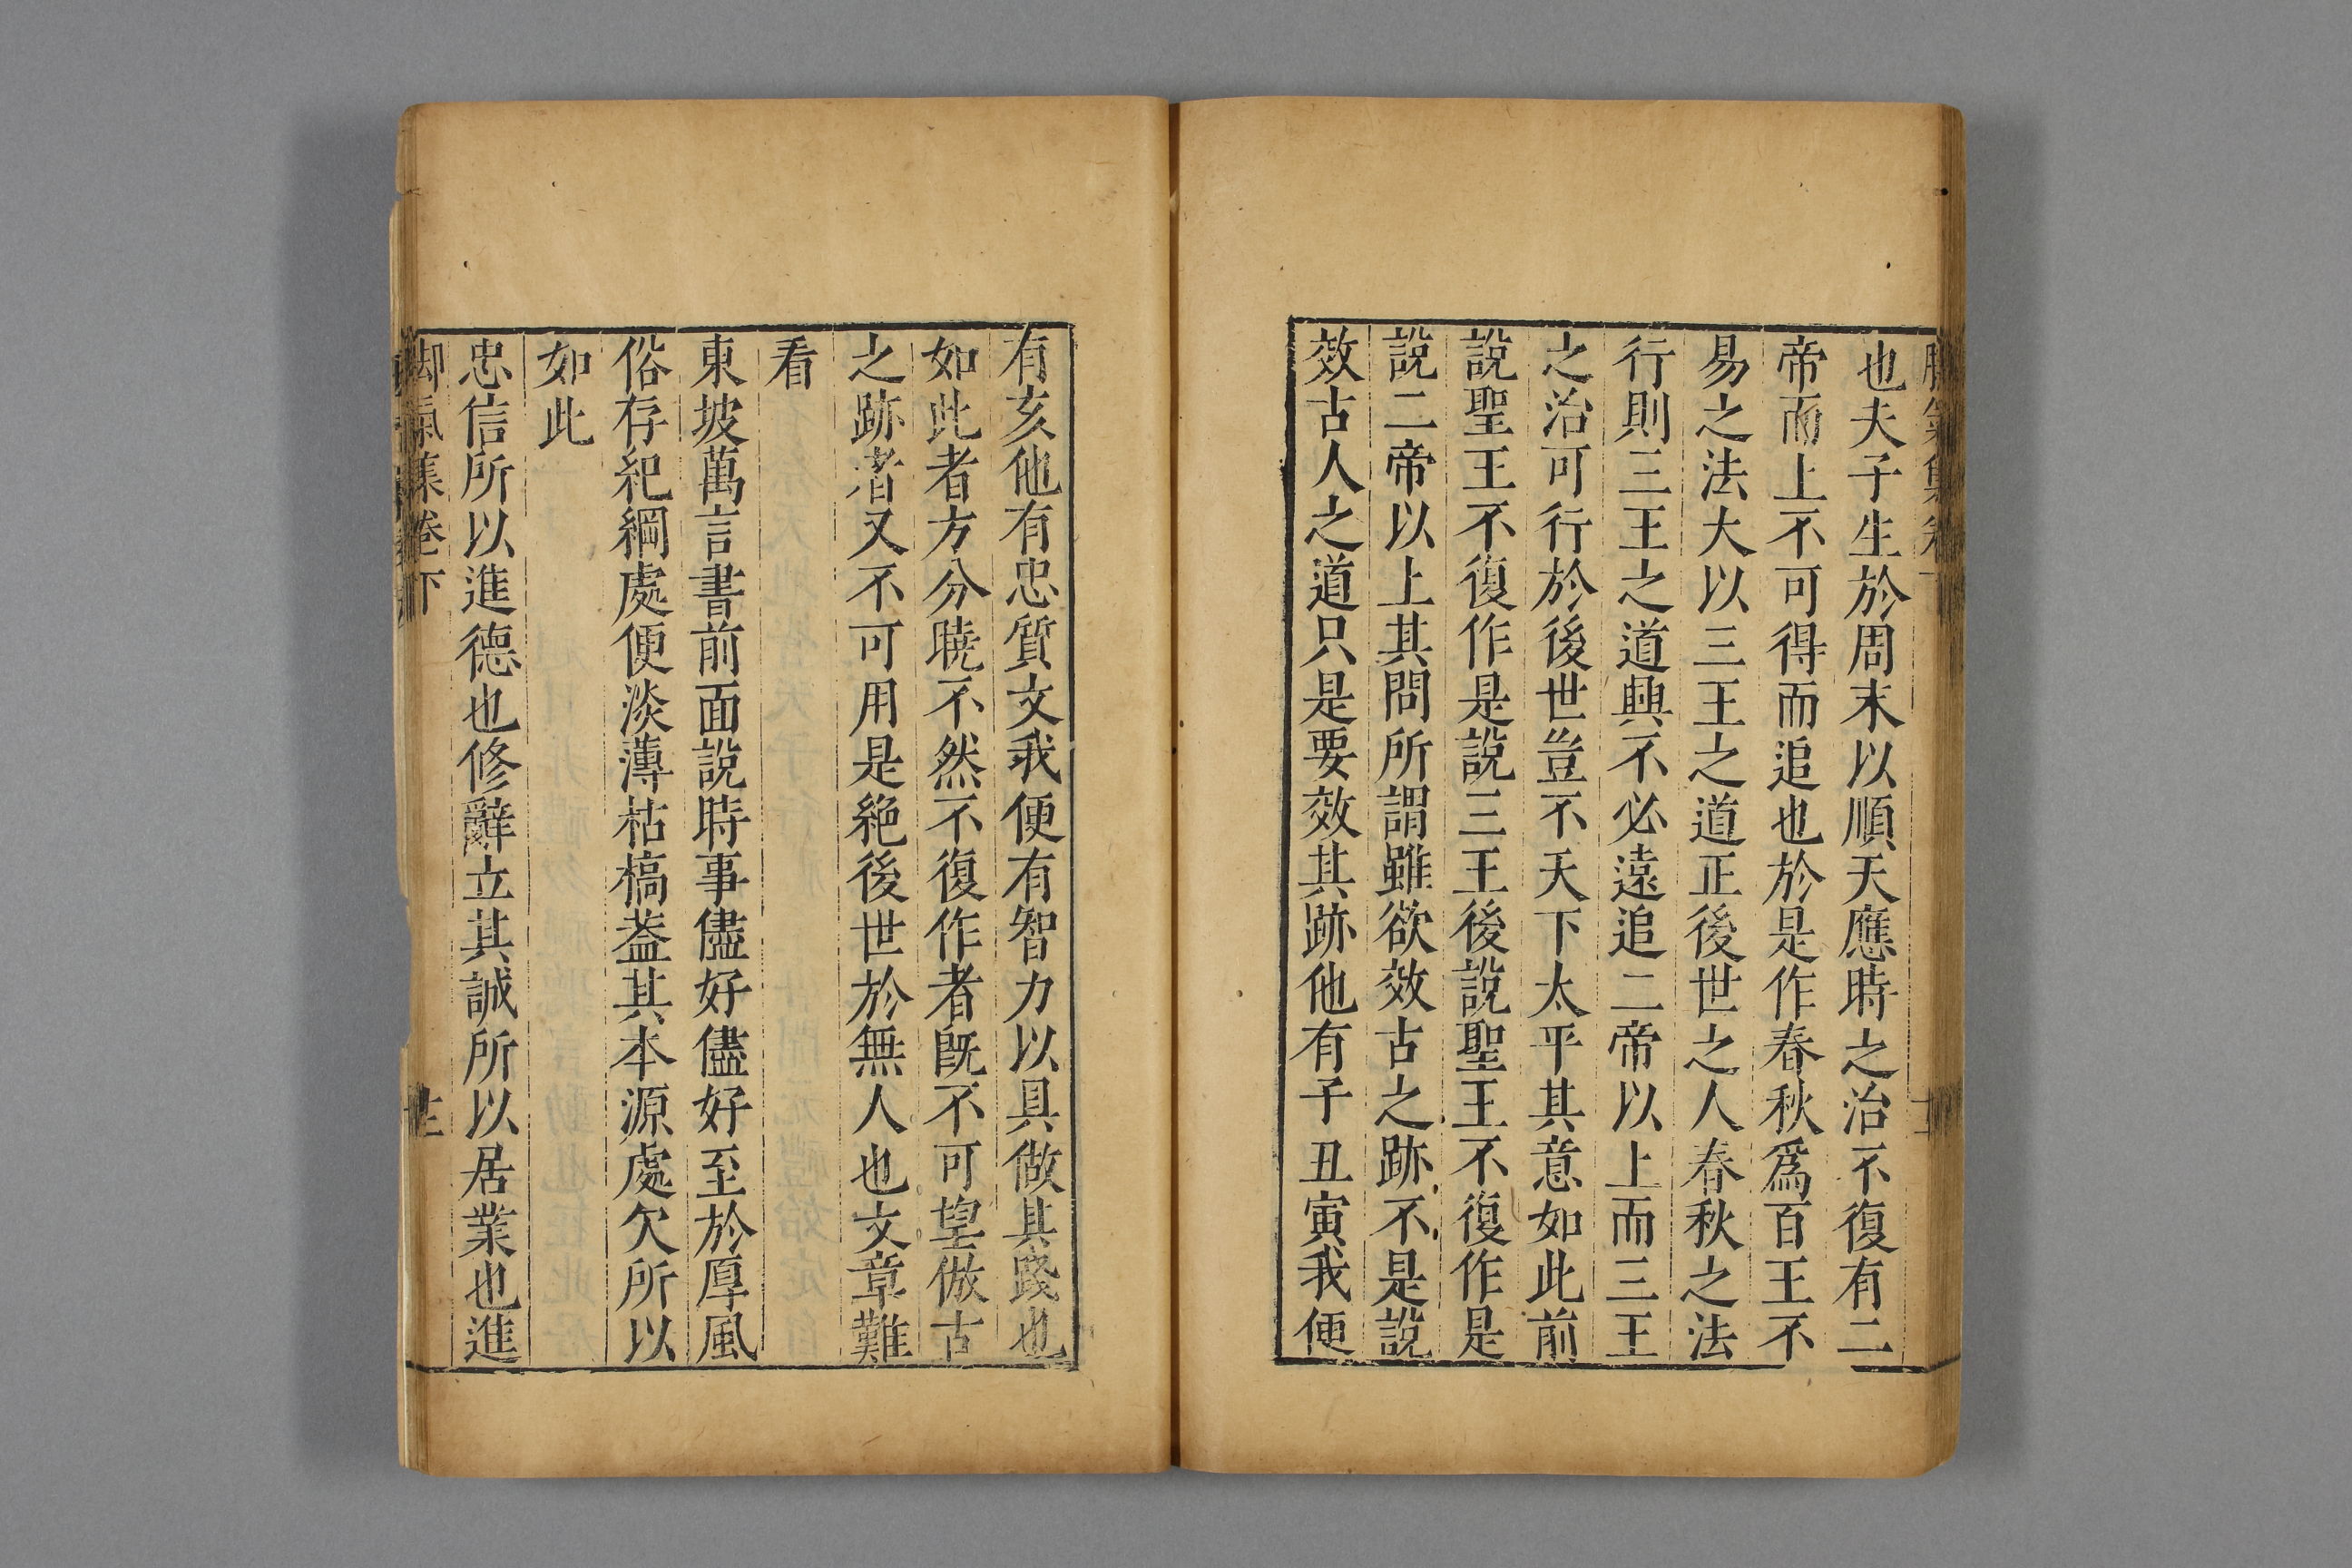 也夫子生於周末以順天應時之治不復有二
帝而上不可得而追也於是作春秋爲百王不
易之法大以三王之道正後世之人春秋之法
行則三王之道興不必遠追二帝以上而三王
之治可行於後世豈不天下太平其意如此前
說聖王不復作是說三王後說聖王不復作是
說二帝以上其問所謂雖欲效古之跡不是說
效古人之道只是要效其跡他有子丑寅我便
有亥他有忠質文我便有智力以具做其踐也
如此者方分曉不然不復作者既不可望倣古
之跡者又不可用是絶後世於無人也文章難
看
東坡萬言書前面說時事儘好儘好至於厚風
俗存紀綱處便淡薄枯槁葢其本源處欠所以
如此
忠信所以進德也修辭立其誠所以居業也進
脚氣集卷下